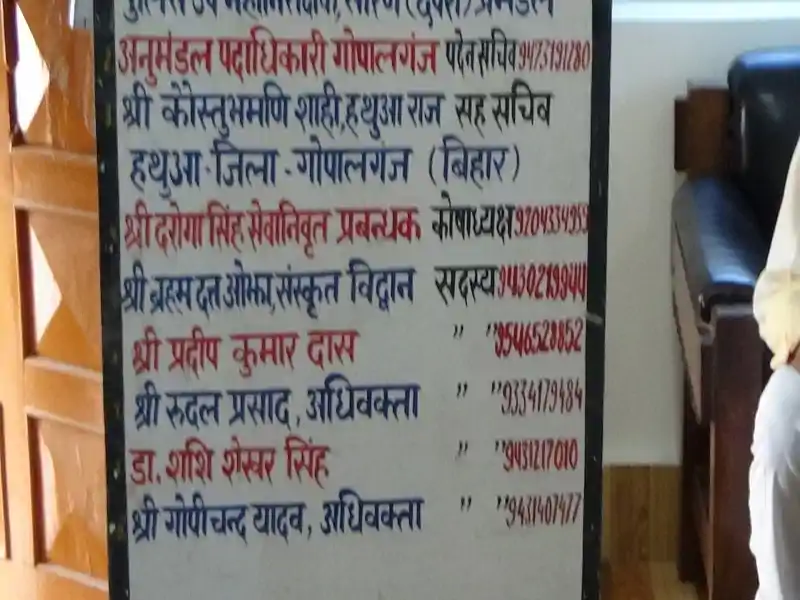 पुलिस उप महानिरीक्षक, सारण (छपरा) प्रमंडल
अनुमंडल पदाधिकारी गोपालगंज पदेन सचिव 9473191280
श्री कौस्तुभमणि शाही, हथुआ राज सह सचिव
हथुआ - जिला - गोपालगंज (बिहार)
श्री दरोगा सिंह सेवानिवृत प्रबन्धक कोषाध्यक्ष 9204334959
श्री ब्रहम दत्त ओझा, संस्कृत विद्वान सदस्य 9430219944
श्री प्रदीप कुमार दास " " 9546528852
श्री रुदल प्रसाद, अधिवक्ता " " 9334179484
डा. शशि शेखर सिंह " " 9431217010
श्री गोपीचन्द यादव, अधिवक्ता " " 9431407477